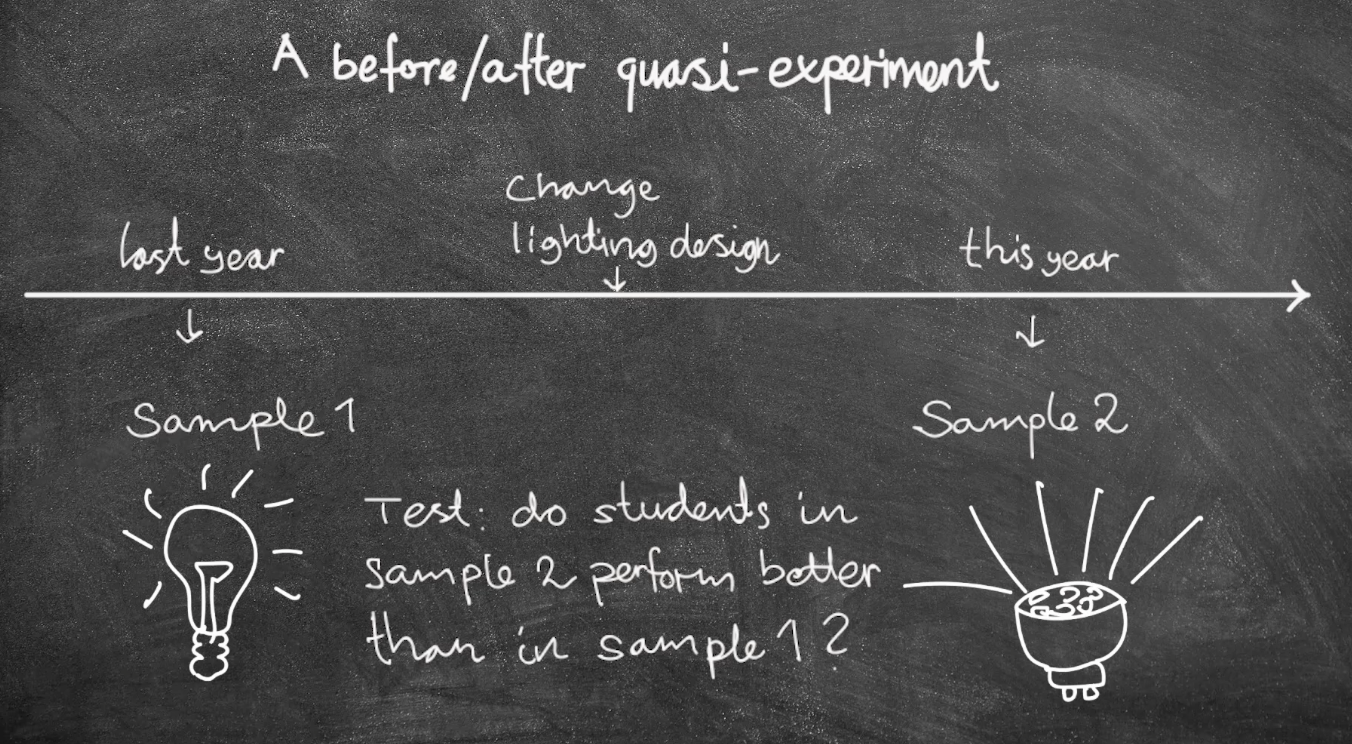 A before/after quasi-experiment
Change
lighting design
last year
this year
Sample 1
Sample 2
Test: do students in
sample 2 perform better
than in sample 1?